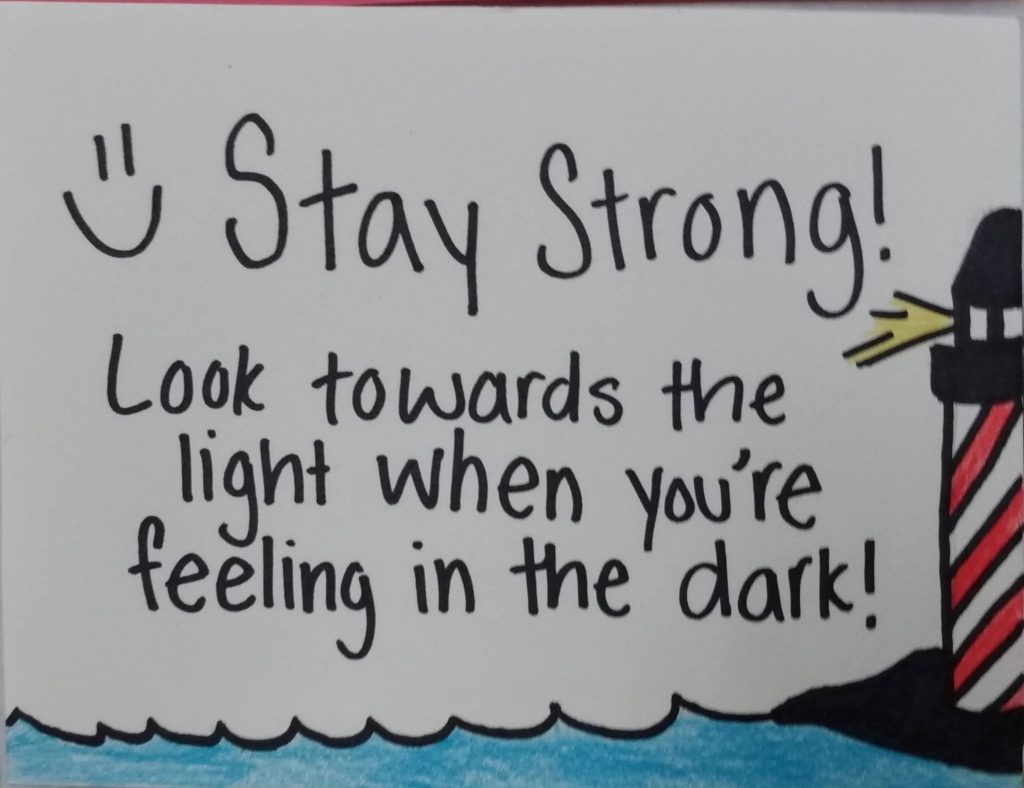 Stay Strong!
Look towards the
light when you're
feeling in the dark!